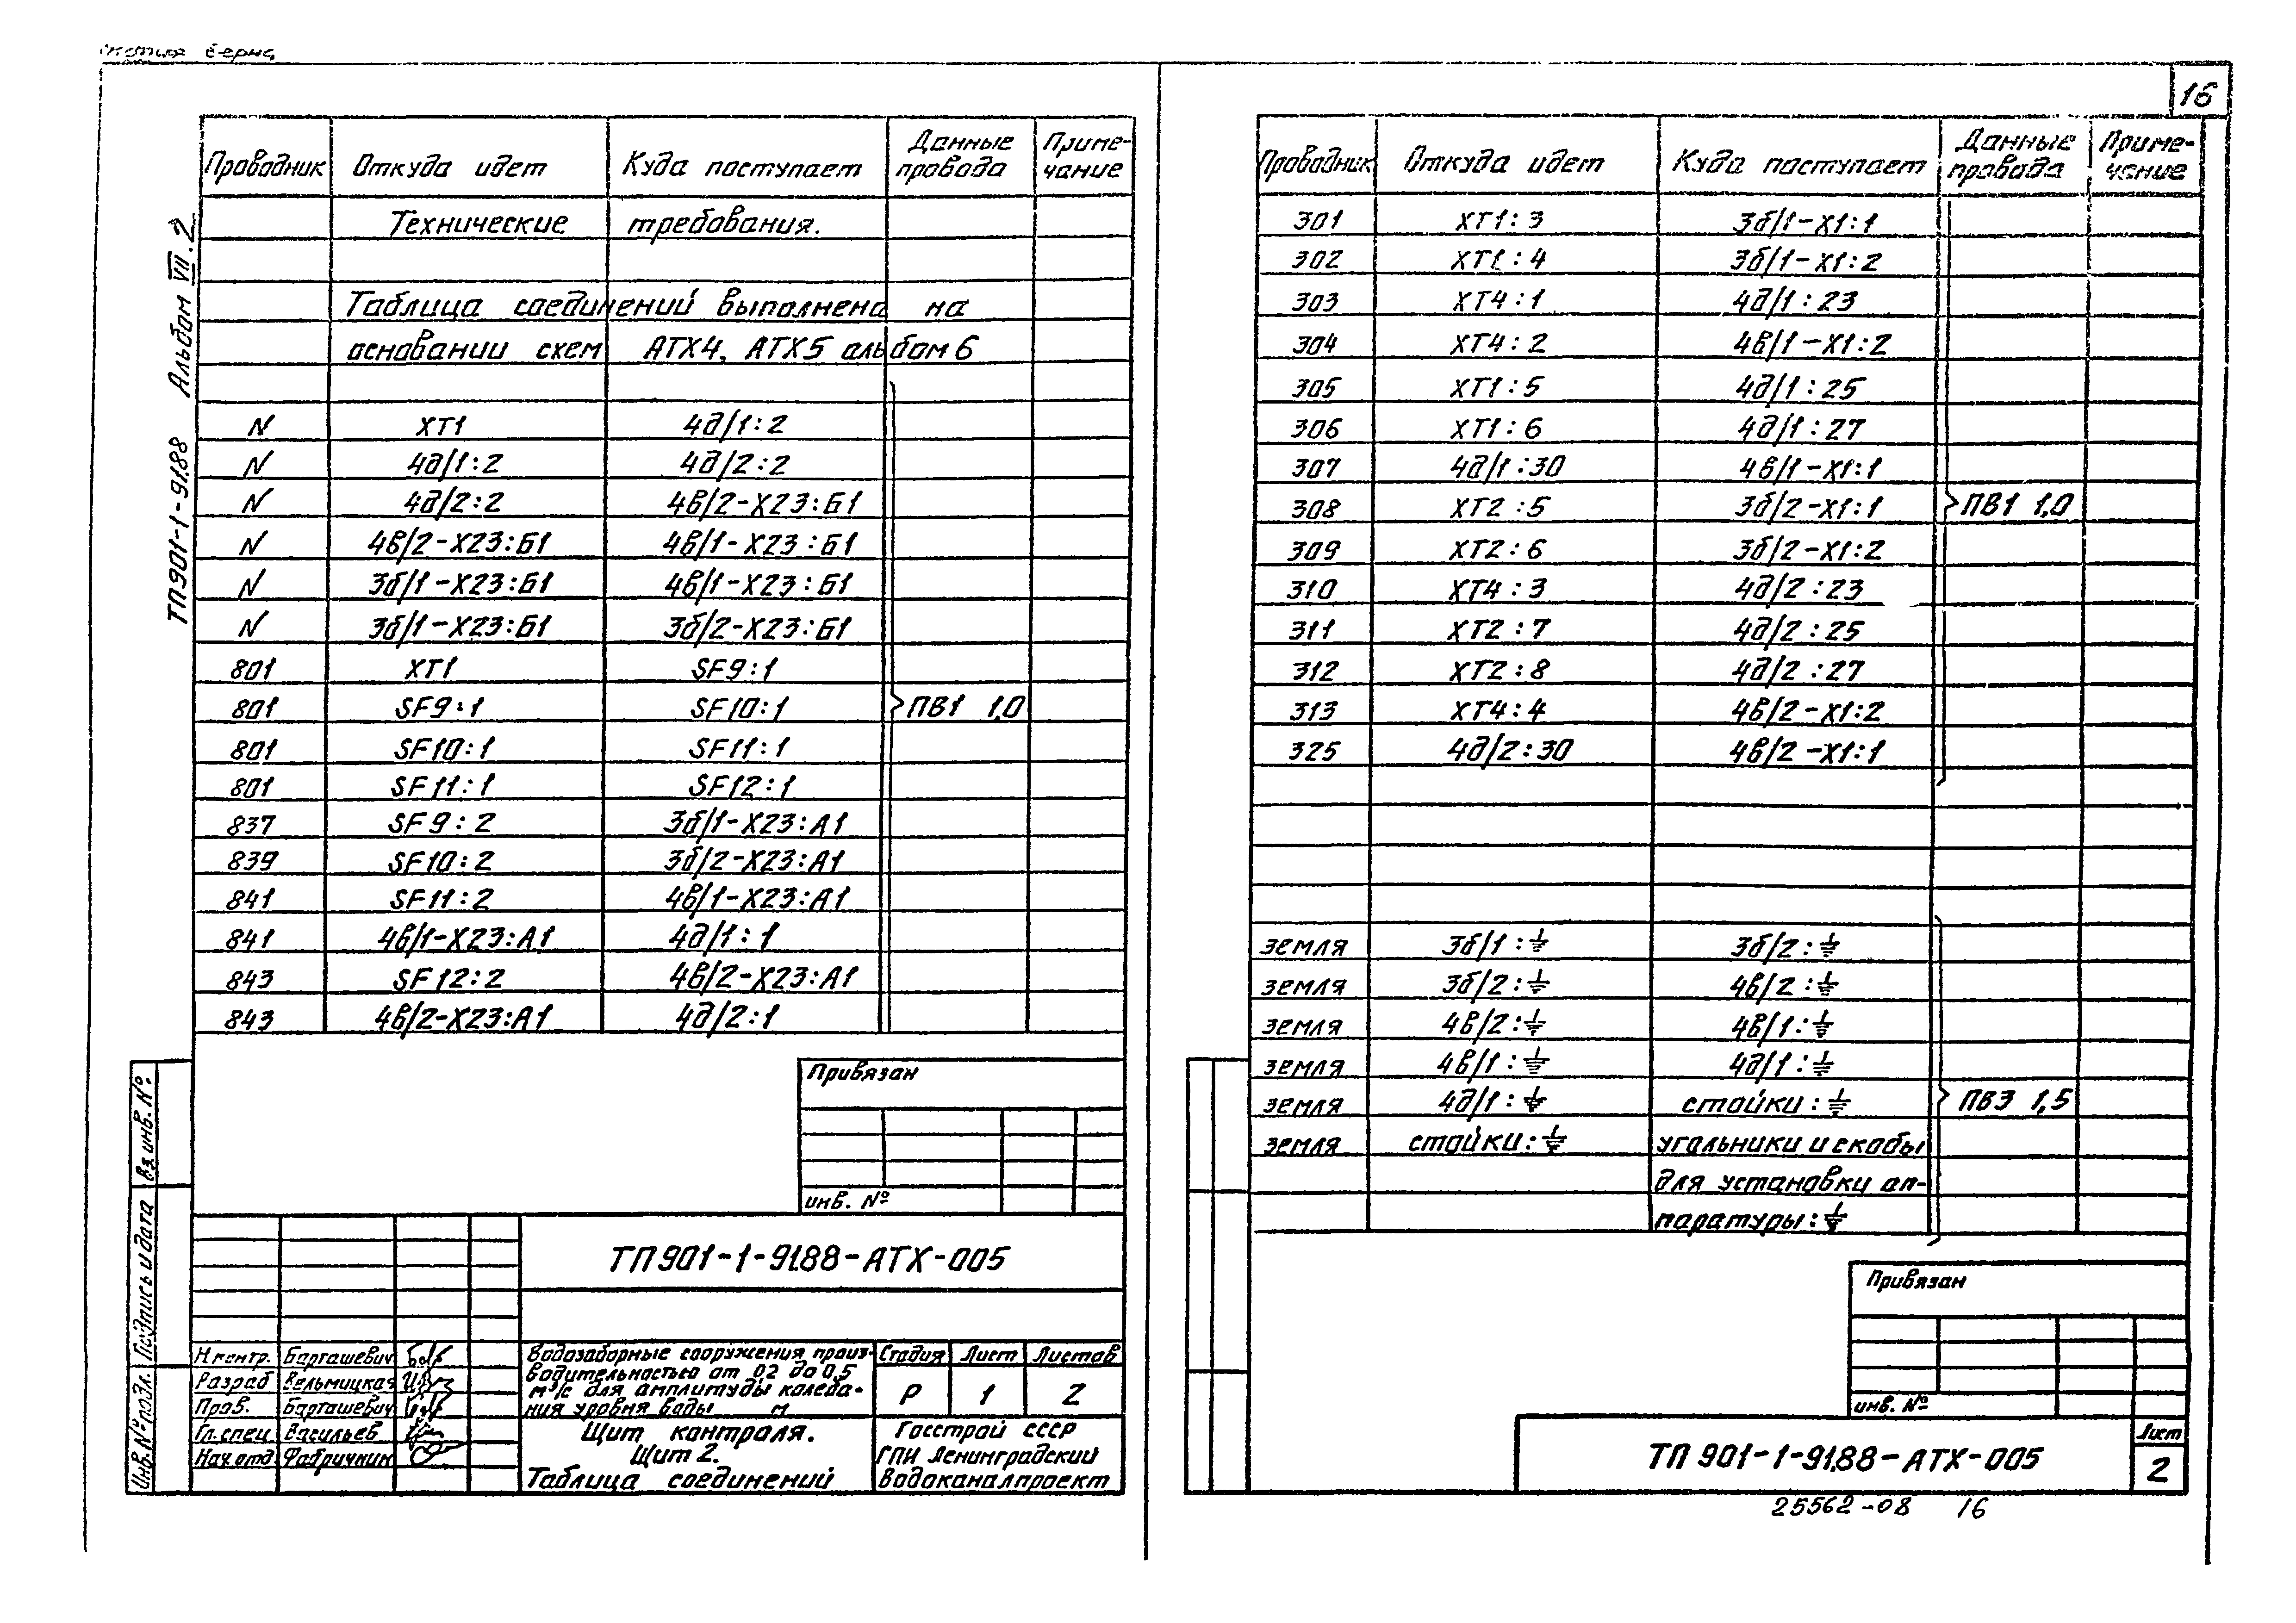 верна
16
ТП901-1-91.88 Альбом VII.2
Проводник Откуда идет Куда поступает Данные провода Приме-чание
Технические требования.
Таблица соединений выполнена на
основании схем АТХ4, АТХ5 альбом 6
N ХТ1 4д/1:2
N 4д/1:2 4д/2:2
N 4д/2:2 4в/2-Х23:Б1
N 4в/2-Х23:Б1 4в/1-Х23:Б1
N 3б/1-Х23:Б1 4в/1-Х23:Б1
N 3б/1-Х23:Б1 3б/2-Х23:Б1
801 ХТ1 SF9:1
801 SF9:1 SF10:1 ПВ1 1,0
801 SF10:1 SF11:1
801 SF11:1 SF12:1
837 SF9:2 3б/1-Х23:А1
839 SF10:2 3б/2-Х23:А1
841 SF11:2 4в/1-Х23:А1
841 4в/1-Х23:А1 4д/1:1
843 SF12:2 4в/2-Х23:А1
843 4в/2-Х23:А1 4д/2:1
Привязан
инв. №
Инв. № подл. Подпись и дата Вз. инв. №
ТП901-1-91.88-АТХ-005
Н.контр. Барташевич
Разраб Вельмицкая
Пров. Барташевич
Гл.спец. Васильев
Нач.отд Фабричкин
Водозаборные сооружения произ-
водительностью от 0.2 до 0.5
м³/с для амплитуды колеба-
ния уровня воды м
Стадия Лист Листов
Р 1 2
Щит контроля.
Щит 2.
Таблица соединений
Госстрой СССР
ГПИ Ленинградский
Водоканалпроект
Проводник Откуда идет Куда поступает Данные провода Приме-чение
301 ХТ1:3 3б/1-Х1:1
302 ХТ1:4 3б/1-Х1:2
303 ХТ4:1 4д/1:23
304 ХТ4:2 4в/1-Х1:2
305 ХТ1:5 4д/1:25
306 ХТ1:6 4д/1:27
307 4д/1:30 4в/1-Х1:1
308 ХТ2:5 3б/2-Х1:1 ПВ1 1,0
309 ХТ2:6 3б/2-Х1:2
310 ХТ4:3 4д/2:23
311 ХТ2:7 4д/2:25
312 ХТ2:8 4д/2:27
313 ХТ4:4 4в/2-Х1:2
325 4д/2:30 4в/2-Х1:1
земля 3б/1:⏚ 3б/2:⏚
земля 3б/2:⏚ 4в/2:⏚
земля 4в/2:⏚ 4в/1:⏚
земля 4в/1:⏚ 4д/1:⏚
земля 4д/1:⏚ стойки:⏚ ПВ3 1,5
земля стойки:⏚ угольники и скобы
для установки ап-
паратуры:⏚
Привязан
инв. №
ТП 901-1-91.88-АТХ-005
Лист
2
25562-08 16